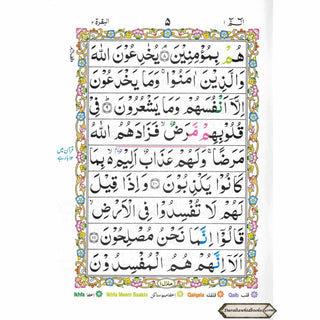 البقرة ٢ ٥ الٓمّٓ ١
هُمْ بِمُؤْمِنِيْنَ ۘ﴿۸﴾ يُخٰدِعُوْنَ اللّٰهَ
وَالَّذِيْنَ اٰمَنُوْا ۚ وَمَا يَخْدَعُوْنَ
اِلَّاۤ اَنْفُسَهُمْ وَمَا يَشْعُرُوْنَ ﴿۹﴾ فِيْ
قُلُوْبِهِمْ مَّرَضٌ ۙ فَزَادَهُمُ اللّٰهُ
مَرَضًا ۚ وَلَهُمْ عَذَابٌ اَلِيْمٌۢ ۙ بِمَا
كَانُوْا يَكْذِبُوْنَ ﴿۱۰﴾ وَاِذَا قِيْلَ
لَهُمْ لَا تُفْسِدُوْا فِي الْاَرْضِ ۙ
قَالُوْۤا اِنَّمَا نَحْنُ مُصْلِحُوْنَ ﴿۱۱﴾
اَلَاۤ اِنَّهُمْ هُمُ الْمُفْسِدُوْنَ
Ikhfa اخفا Ikhfa Meem Saakin اخفا میم ساکن Qalqala قلقلہ Qalb قلب